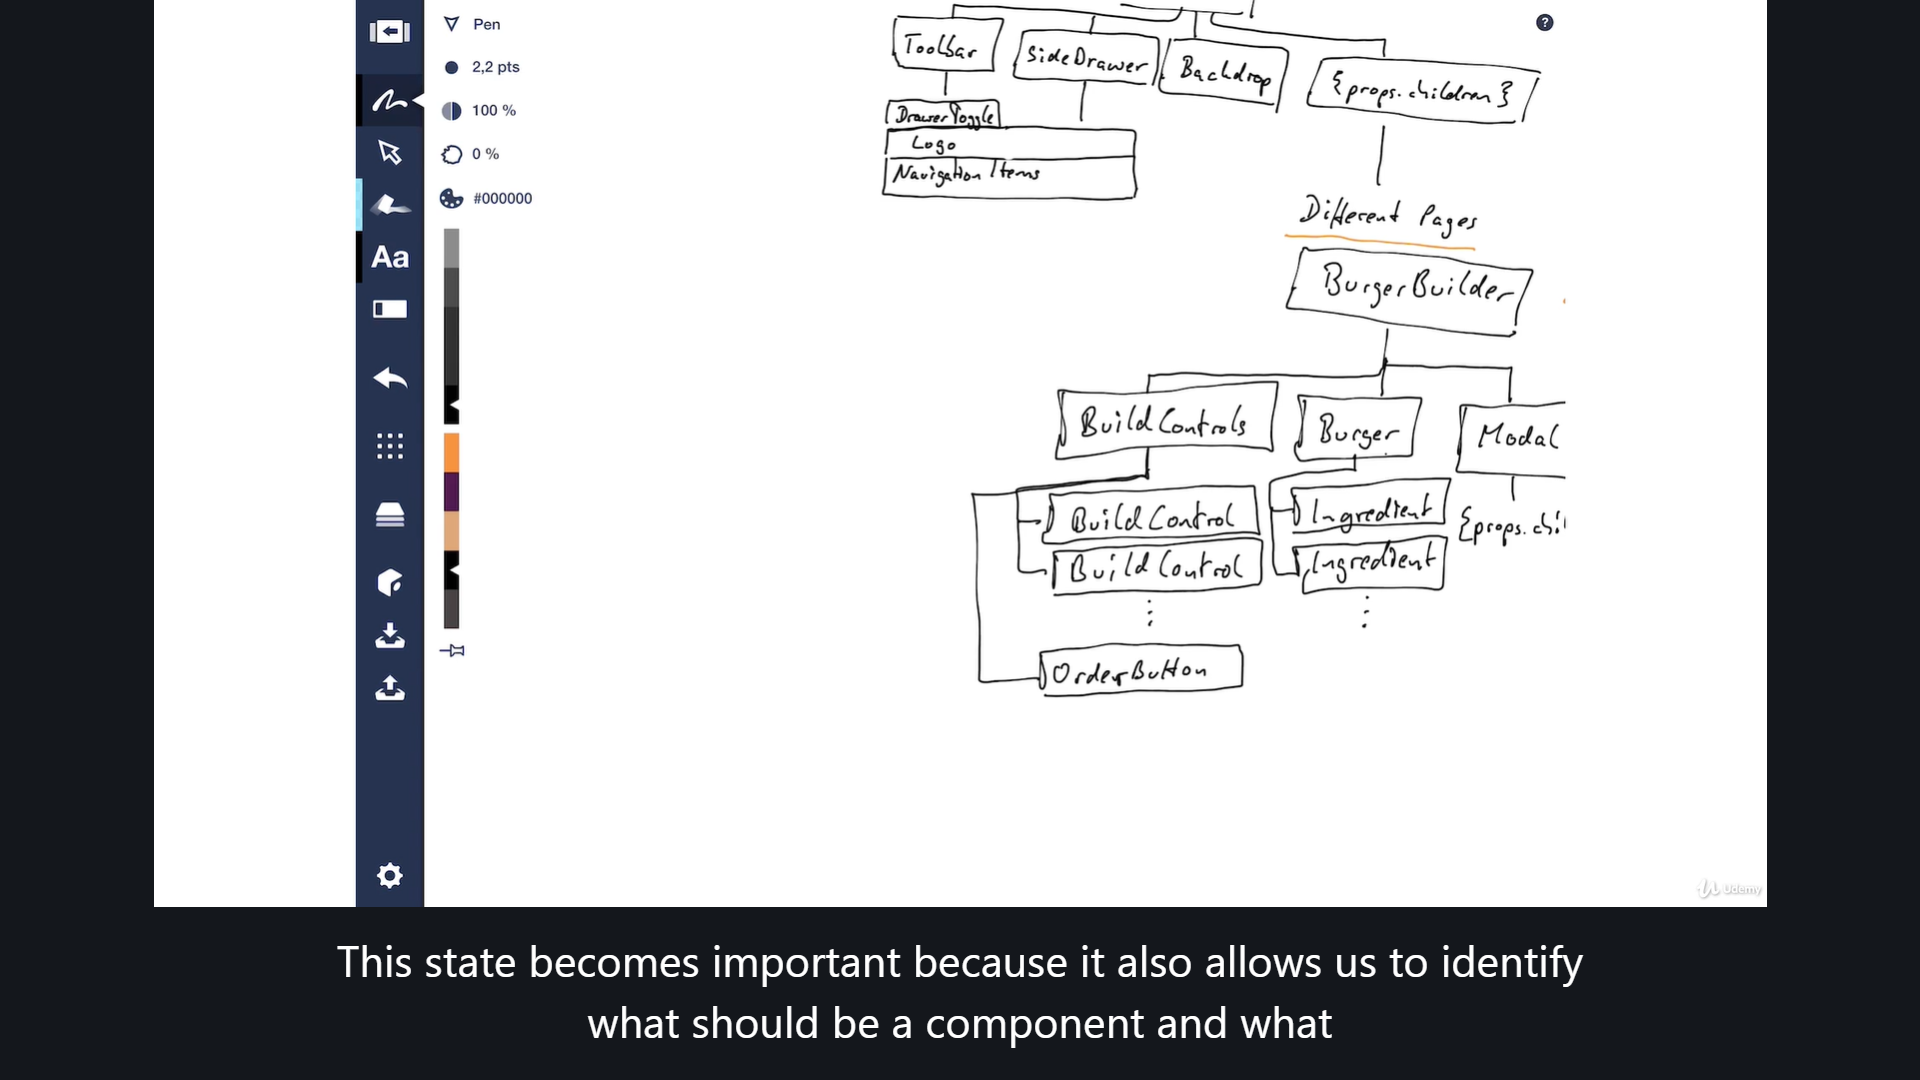 Pen
2,2 pts
100 %
0 %
#000000
Aa
?
Toolbar
SideDrawer
Backdrop
{props.children}
DrawerToggle
Logo
Navigation Items
Different Pages
BurgerBuilder
BuildControls
Burger
Modal
BuildControl
Ingredient
{props.chi
BuildControl
Ingredient
OrderButton
Udemy
This state becomes important because it also allows us to identify
what should be a component and what